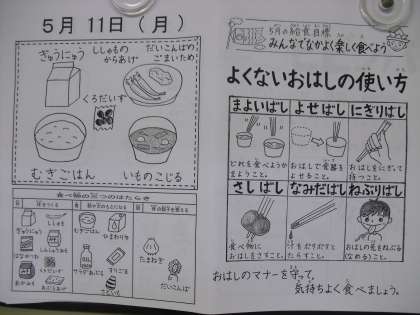 5月 11日（月）
ぎゅうにゅう
ししゃもの
からあげ
だいこんばの
ごまいため
くろだいず
むぎごはん
いものこじる
食べ物の三つのはたらき
ぎゅうにゅう
ししゃも
むぎごはん
ひまわりゆ
サラダあぶら
すりごま
さといも
たまねぎ
だいこんば
5月の給食目標
みんなでなかよく楽しく食べよう
よくないおはしの使い方
まよいばし
よせばし
にぎりばし
どれを食べようか
まようこと。
おはしで食器を
よせること。
おはしをにぎって
持つこと。
さしばし
なみだばし
ねぶりばし
食べ物に
おはしをさすこと。
汁をポタポタと
たらすこと。
おはしの先をねぶる
(なめる)こと。
おはしのマナーを守って、
気持ちよく食べましょう。